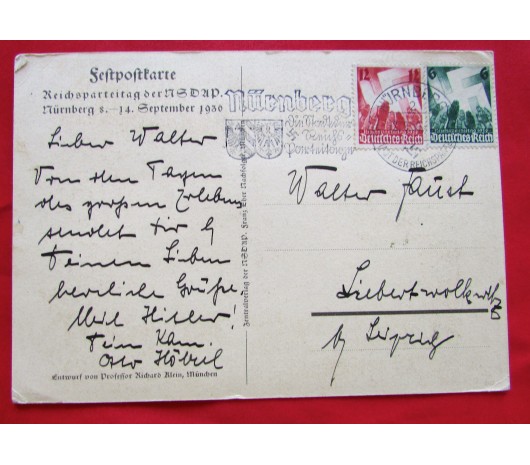 Festpostkarte
Reichsparteitag der NSDAP.
Nürnberg 8.–14. September 1936
Lieber Walter
Von den Tagen
des großen Erlebens
sendet Dir &
Deinen Lieben
herzliche Grüße.
Heil Hitler!
Dein Kam.
Otto
Entwurf von Professor Richard Klein, München
Zentralverlag der NSDAP. Franz Eher Nachfolger
Nürnberg
die Stadt
12 12
Deutsches Reich
6 6
Deutsches Reich
NÜRNBERG
DER REICHSPARTEITAGE
Walter Faust
Liebertwolkwitz
b/ Leipzig